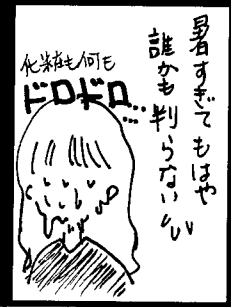 暑すぎてもはや
誰かも判らない
化粧も何も
ドロドロ…